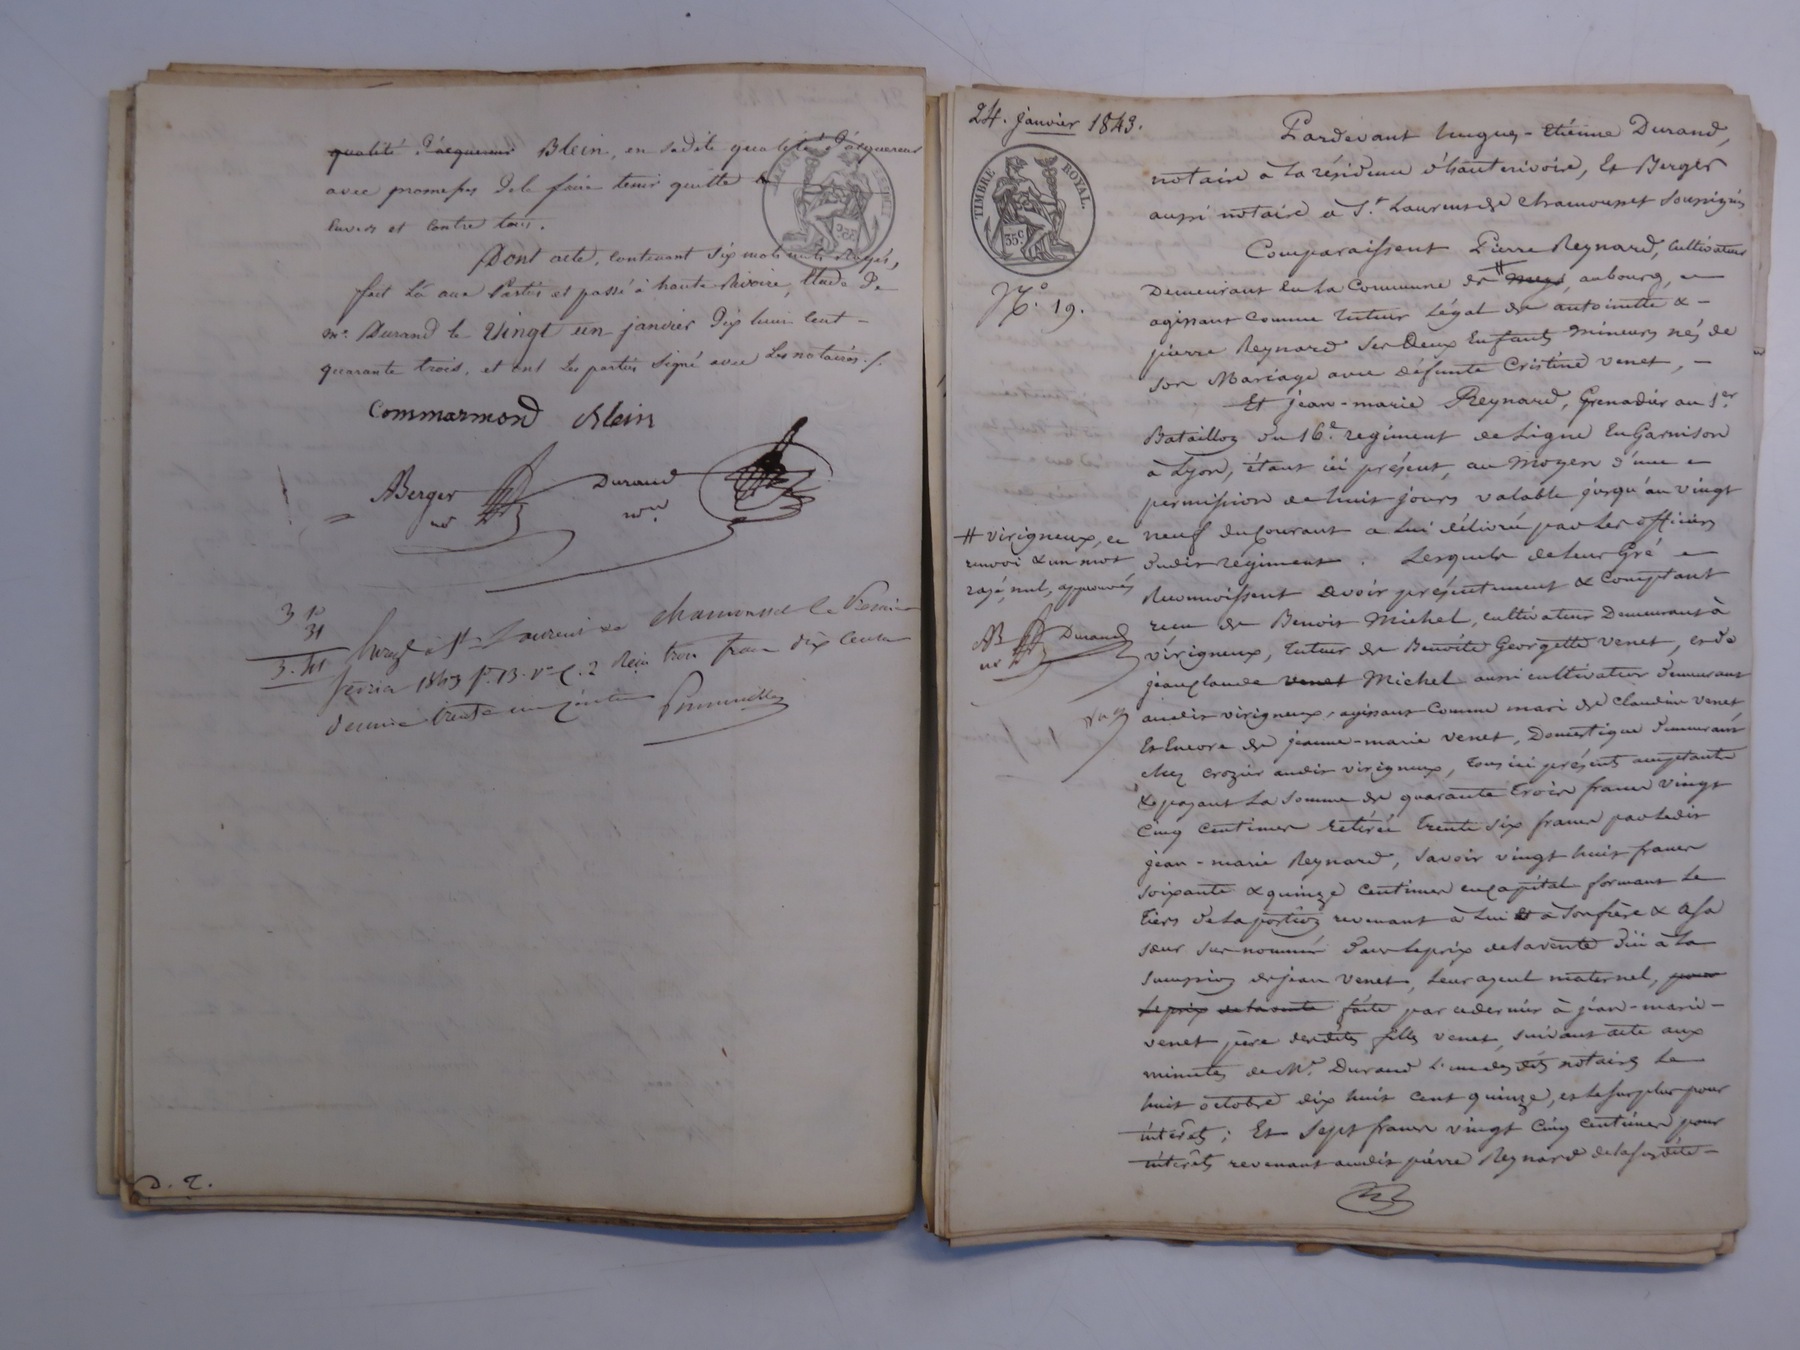 qualité d'acquereur Blein, en sadite qualité d'acquereur
avec promesses de le faire tenir quitte
envers et contre tous.
Dont acte, contenant six mots nuls rayés,
fait lu aux Parties et passé à haute Rivoire, Etude de
Me. Durand le Vingt un janvier dix huit cent
quarante trois, et ont les parties signé avec les notaires ./.
Commarmond Blein
ABerger Durand
nre
3 10
31
3. 41
Enregé à St. Laurent de chamousset le Premier
février 1843 f. 13. Vo C. 2 Reçu trois francs dix centimes
decime trente un centimes
D. T.
24. janvier 1843.
TIMBRE ROYAL.
35 c.
No. 19.
Pardevant hugues-Etienne Durand,
notaire à la résidence d'hauterivoire, Et Berger
aussi notaire à St. Laurent de chamousset soussignés
Comparaissent Pierre Reynard, cultivateur
Demeurant en la Commune de #, aubourg,
agissant comme tuteur légal de antoinette &
pierre Reynard ses Deux Enfants mineurs nés de
son Mariage avec défunte Cristine venet,
Et jean-marie Reynard, Grenadier au 1er
Bataillon du 16e. regiment de Ligne En Garnison
à Lyon, étant ici présent, au moyen d'une
permission de huit jours valable jusqu'au vingt
neuf du courant a lui délivrée par les officiers
dudit regiment. Lesquels de leur Gré
Reconnoissent avoir présentement & comptant
recu de Benoit Michel, cultivateur Demeurant à
virigneux, tuteur de Benoite Georgette venet, et de
jeanclaude venet Michel aussi cultivateur demeurant
audit virigneux, agissant comme mari de claudine venet,
Et Encore de jeanne-marie venet, Domestique demeurant
chez crozier audit virigneux, tous ici présents acceptants
& payant la somme de quarante trois francs vingt
cinq centimes retirée trente six francs par ledit
jean-marie Reynard, savoir vingt huit francs
soixante & quinze centimes en capital formant le
tiers de la portion revenant à lui & à son frère & à sa
sœur sus nommés dans le prix de la vente dûe à la
succession de jean venet, leur ayeul maternel, pour
le prix de la vente faite par ce dernier à jean-marie
venet père desdites filles venet, suivant acte aux
minutes de Me. Durand l'un des dits notaires le
huit octobre dix huit cent quinze, et le surplus pour
intérêts; Et sept francs vingt cinq centimes pour
intérêts revenant audit pierre Reynard de la susdite
# virigneux, ce
renvoi & un mot
rayé, nul, approuvés
AB Durand
nre